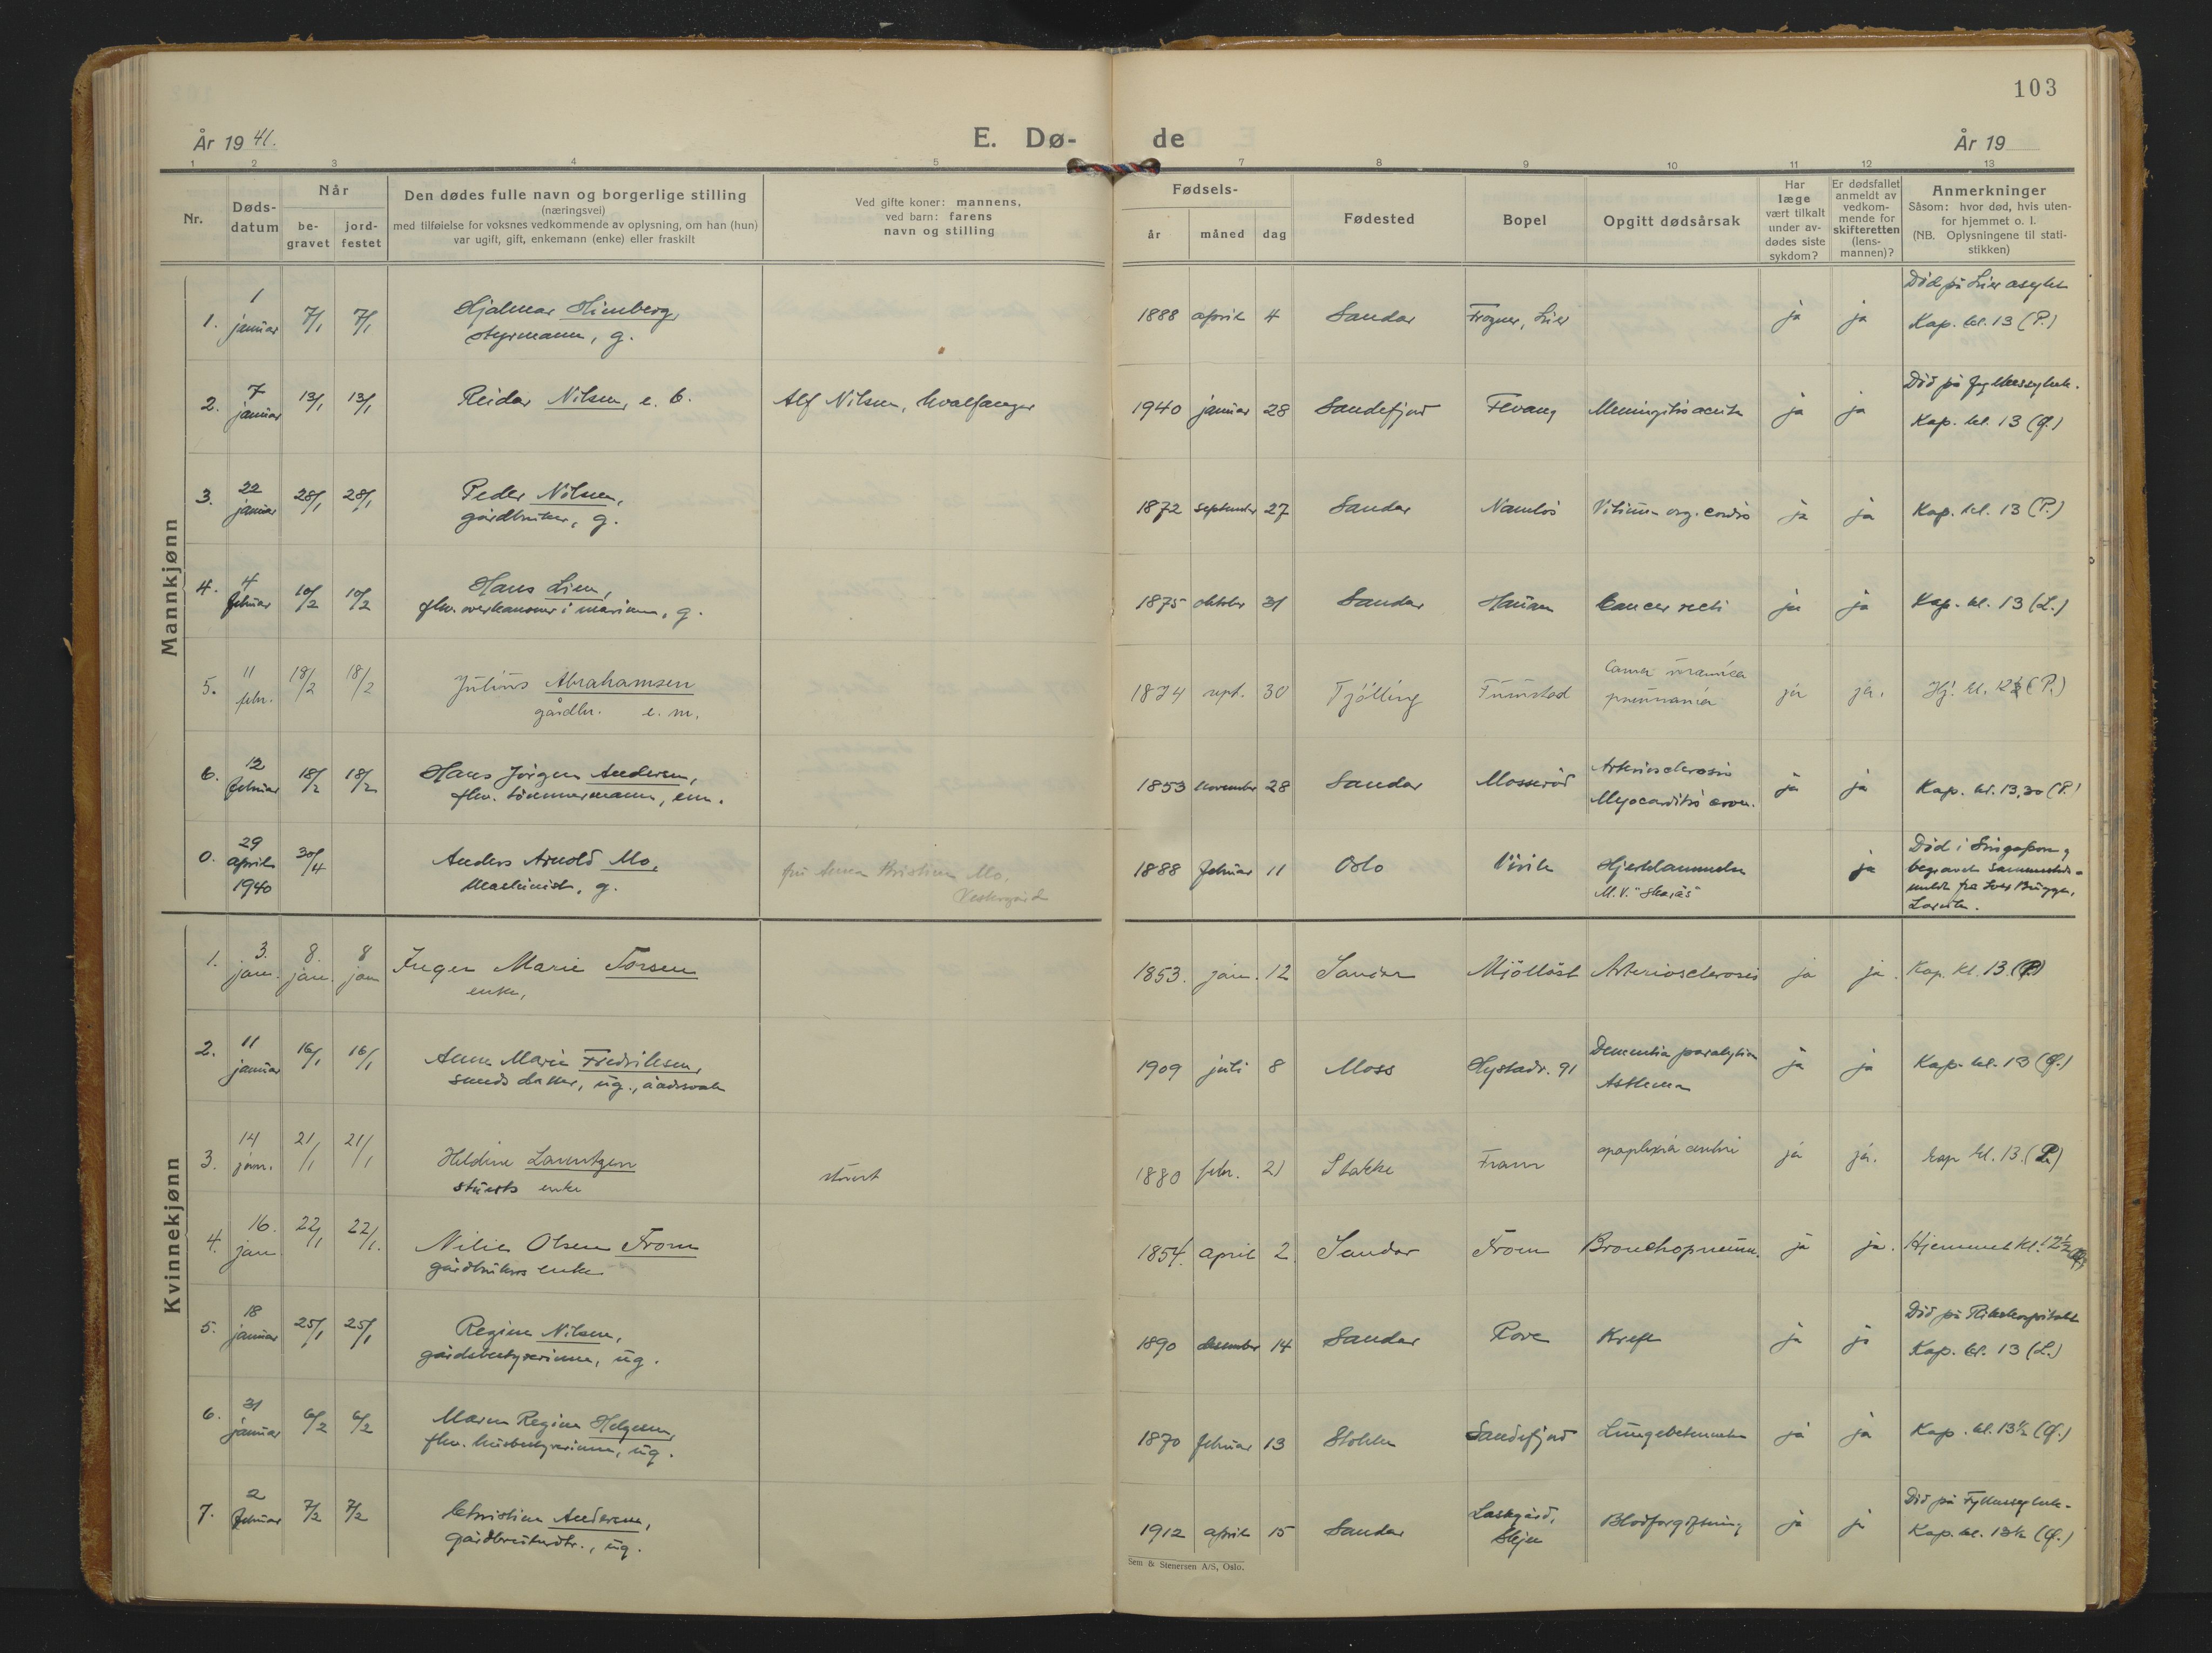 103
År 19 41.
E. Dø-
de
År 19
1 2 3 4 5 7 8 9 10 11 12 13
Nr.
Døds-
datum
Når
be-
gravet
jord-
festet
Den dødes fulle navn og borgerlige stilling
(næringsvei)
med tilføielse for voksnes vedkommende av oplysning, om han (hun)
var ugift, gift, enkemann (enke) eller fraskilt
Ved gifte koner: mannens,
ved barn: farens
navn og stilling
Fødsels-
år måned dag
Fødested
Bopel
Opgitt dødsårsak
Har
læge
vært tilkalt
under av-
dødes siste
sykdom?
Er dødsfallet
anmeldt av
vedkom-
mende for
skifteretten
(lens-
mannen)?
Anmerkninger
Såsom: hvor død, hvis uten-
for hjemmet o. l.
(NB. Oplysningene til stati-
stikken)
Mannkjønn
1. 1 januar 7/1 7/1 Hjalmar Himberg,
styrmann, g.
1888 april 4 Sandar Frogner, Lier ja ja
Død på Lier asylet
Kap. kl. 13 (P.)
2. 7 januar 13/1 13/1 Reidar Nilsen, e. b.
Alf Nilsen, hvalfanger
1940 januar 28 Sandefjord Fevang Meningitis acuta ja ja
Død på Fylkessykeh.
Kap. kl. 13 (Q.)
3. 22 januar 28/1 28/1 Peder Nilsen,
gårdbruker, g.
1872 september 27 Sandar Namløs Vitium org. cordis ja ja Kap. kl. 13 (P.)
4. 4 februar 10/2 10/2 Hans Lien,
fhv. overkanoner i marinen, g.
1875 oktober 31 Sandar Haúan Cancer recti ja ja Kap. kl. 13 (L.)
5. 11 febr. 18/2 18/2 Júliús Abrahamsen
gårdbr. e. m.
1874 sept. 30 Tjölling Fúrústad
ja ja. Hj. kl. 12½ (P.)
6. 12 februar 18/2 18/2 Hans Jörgen Andersen,
fhv. tömmermann, enm.
1853 november 28 Sandar Mosseröd Arteriosclerosis
Myocarditis cron. ja ja Kap. kl. 13,30 (P.)
0. 29
april
1940
30/4 Anders Arnold Mo,
Maskinist, g.
frú Anna Kristine Mo,
Vestergård
1888 februar 11 Oslo Virik Hjertelammelse
M.V. "Skarås"
ja
Død i Singapore,
begravet sammesteds
Larvik.
Kvinnekjønn
1. 3. jan. 8. jan. 8 jan Inger Marie Torsen
enke,
1853. jan. 12 Sandar Mjölløst Arteriosclerosis ja ja. Kap. kl. 13. (P)
2. 11 januar 16/1 16/1 Anna Marie Fredriksen,
smeds datter, úg., åndssvak
1909 juli 8 Moss Hystadv. 91 Dementia paralytica
Asthma ja ja Kap. kl. 13 (Q.)
3. 14 jan. 21/1 21/1 Heldine Lavrntzen
stúerts enke
stuert
1880 febr. 21 Stokke Fram apoplexia cerebri ja ja. Kap kl. 13. (L)
4. 16. jan. 22/1 22/1. Nilia Olsen From
gårdbrukers enke
1854. april 2 Sandar From Bronchopneum. ja ja. Hjemmet kl. 12½
5. 18 januar 25/1 25/1 Regine Nilsen,
gårdsbestyrerinne, úg.
1890 desember 14 Sandar Rove Kreft ja ja
Død på Rikshospitalet
Kap. kl. 13 (L.)
6. 31 januar 6/2 6/2 Maren Regine Helgesen,
fhv. húsbestyrerinne, úg.
1870 februar 13 Stokke Sandefjord Lúngebetennelse ja ja Kap. kl. 13½ (Q.)
7. 2 februar 7/2 7/2 Christine Andersen,
gårdbrúkerdtr., úg.
1912 april 15 Sandar Laskgård,
Skjee Blodforgiftning ja ja
Død på Fylkessykeh.
Kap. kl. 13½ (Q.)
Sem & Stenersen A/S, Oslo.